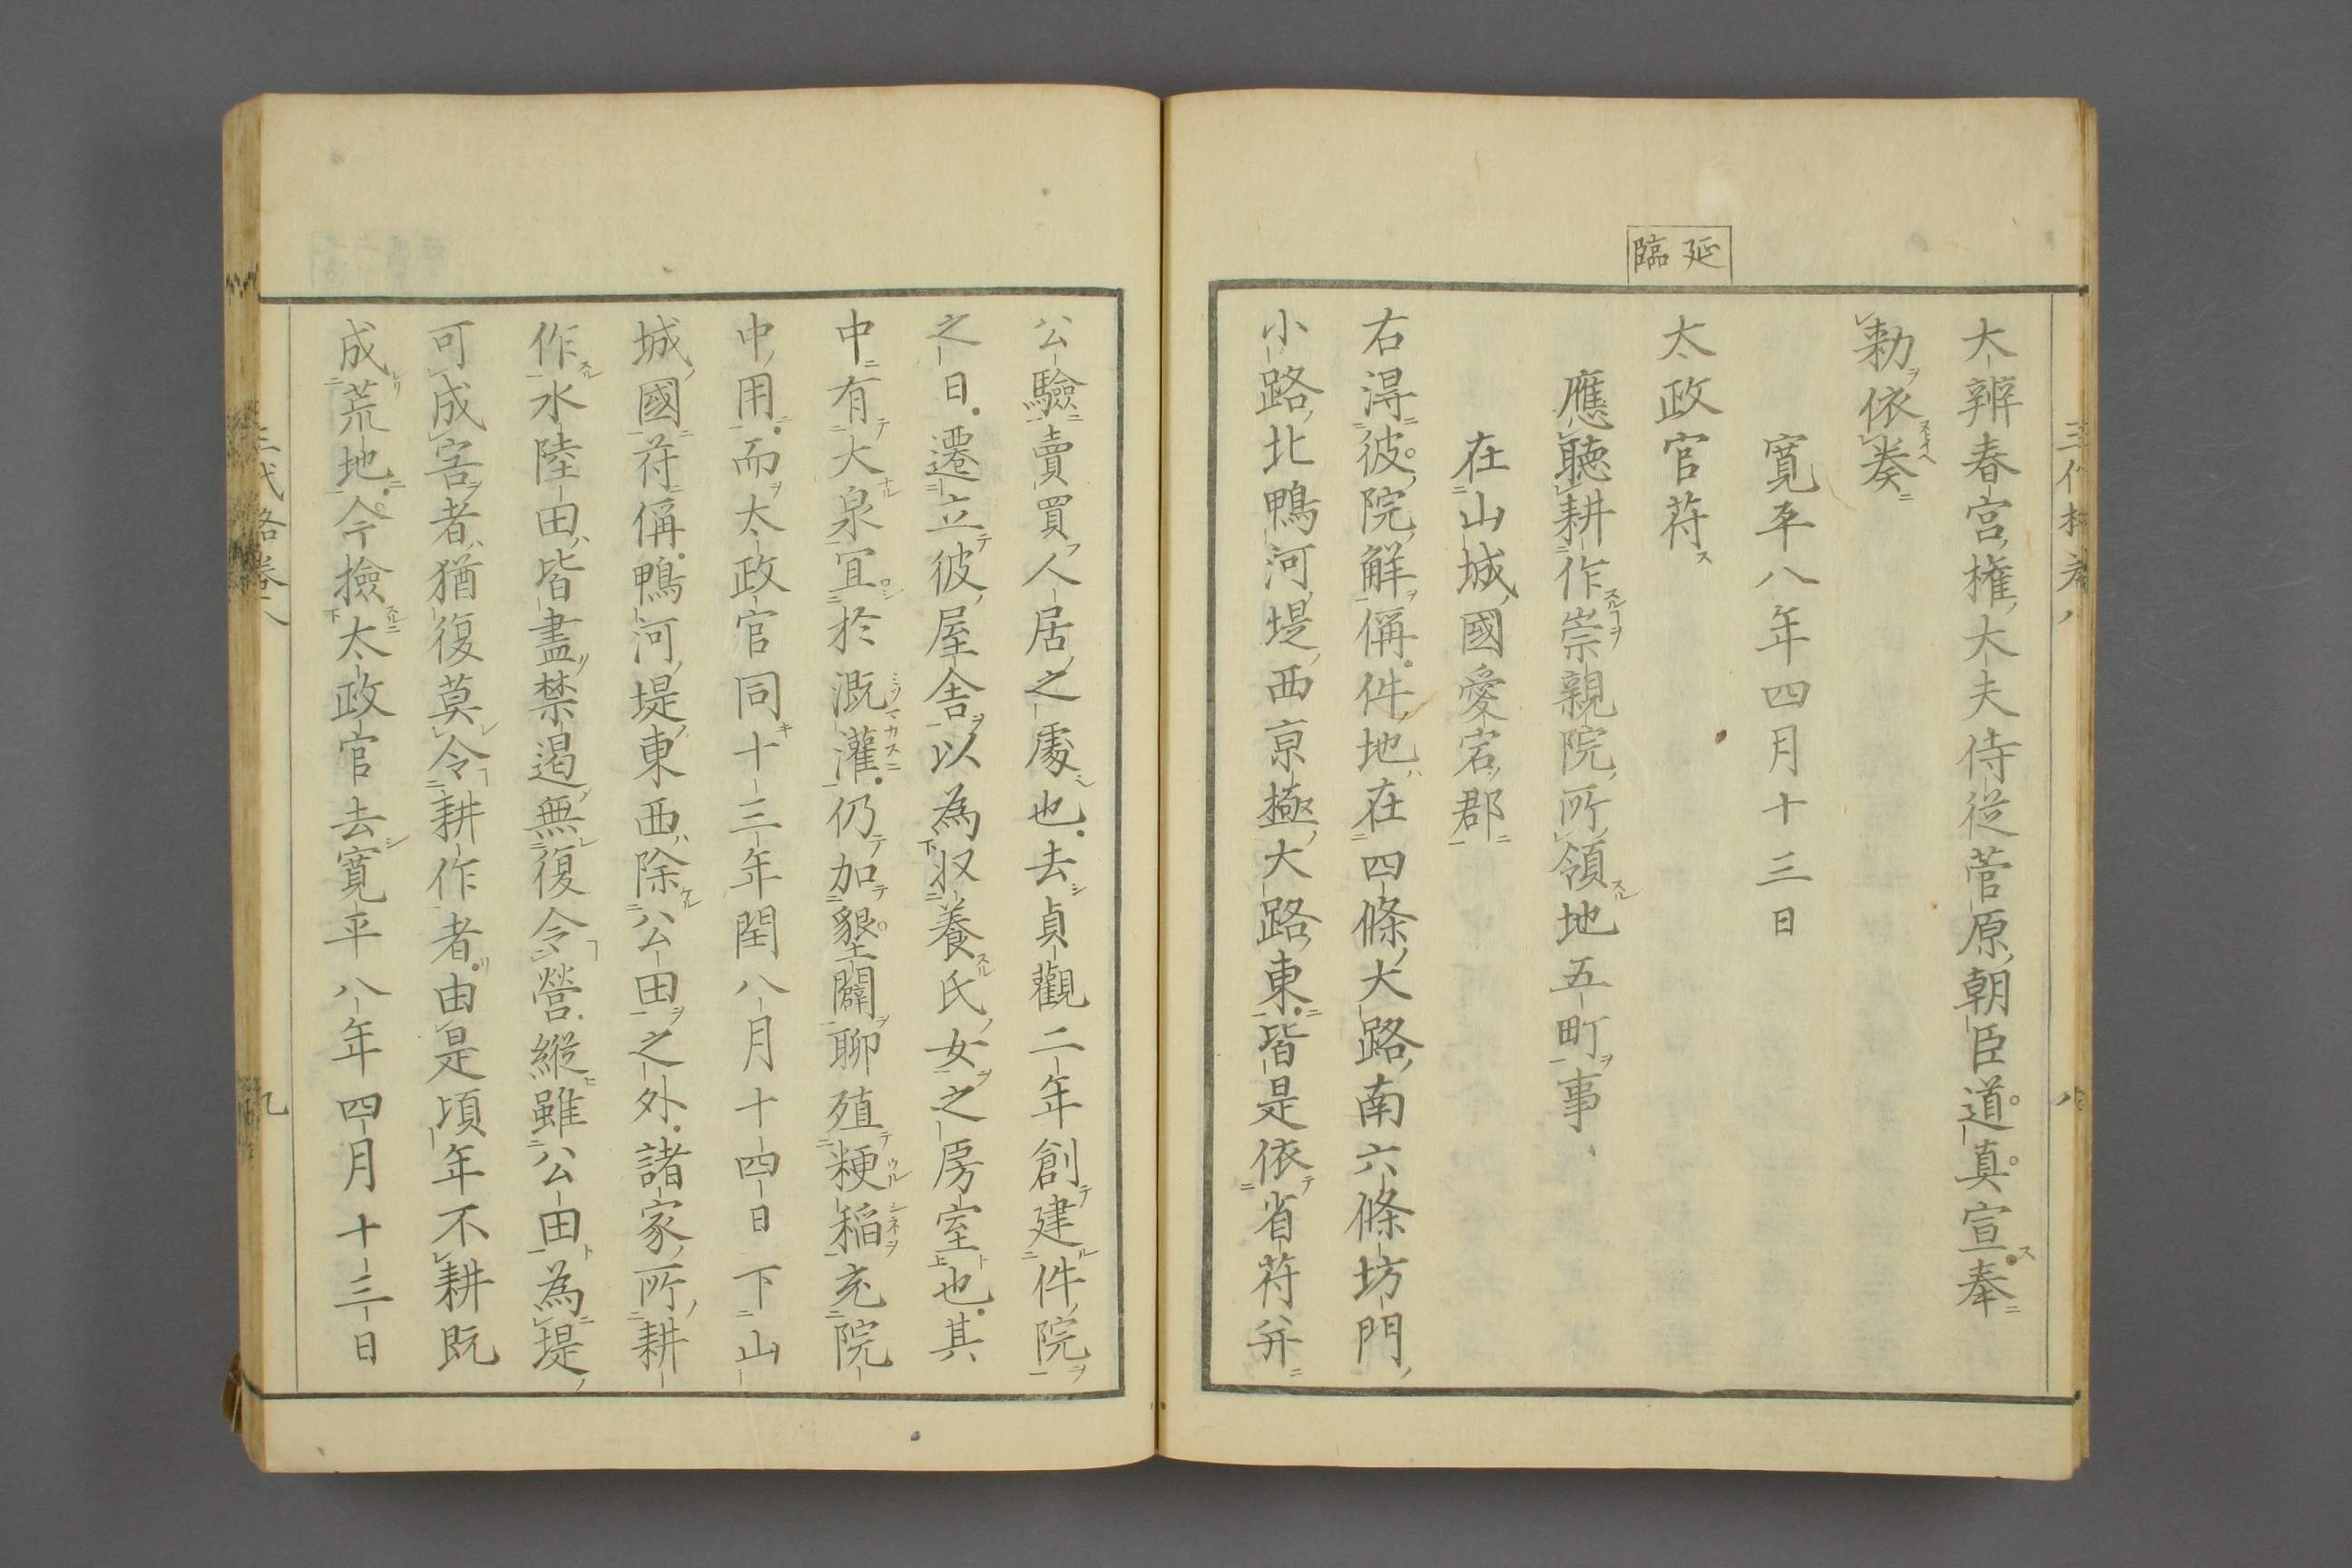 延臨
大辨春宮權大夫侍從菅原朝臣道真宣奉
勅依奏
寛平八年四月十三日
太政官符
應聽耕作崇親院所領地五町事
在山城國愛宕郡
右得彼院解偁件地在四條大路南六條坊門
小路北鴨河堤西京極大路東皆是依省符并
公驗賣買人居之處也去貞觀二年創建件院
之日遷立彼屋舎以為収養氏女之房室也其
中有大泉宜於漑灌仍加墾闢聊殖粳稲充院
中用而太政官同十三年閏八月十四日下山
城國符偁鴨河堤東西除公田之外諸家所耕
作水陸田皆盡禁遏無復令營縱雖公田為堤
可成害者猶復莫令耕作者由是頃年不耕既
成荒地今撿太政官去寛平八年四月十三日
三代格卷八
九